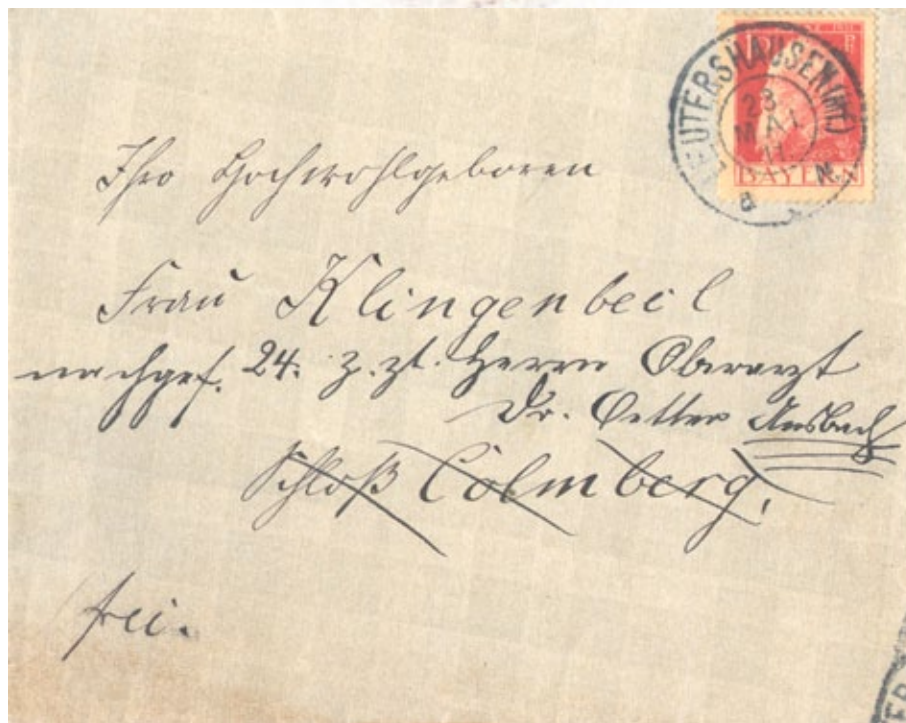 LEUTERSHAUSEN (Mfr.)
23
MAI
11
BAYERN
Ihro Hochwohlgeboren
Frau Klingenbeil
nachges. 24. z. zt. Herrn Oberarzt
Dr. Oetter Ansbach
Schloß Colmberg,
frei.